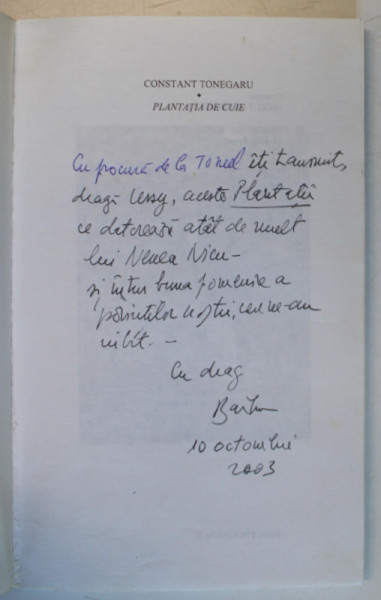 CONSTANT TONEGARU
•
PLANTAȚIA DE CUIE
Cu procură de la Tonel îți transmit,
dragă Lessy, aceste Plantații
ce datorează atât de mult
lui Nenea Nicu –
și întru buna pomenire a
părinților noștri, care ne-au
iubit. –
Cu drag
Barbu
10 octombrie
2003